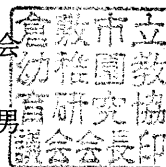 会
男
倉敷市立
幼稚園教
育研究協
議会会長印